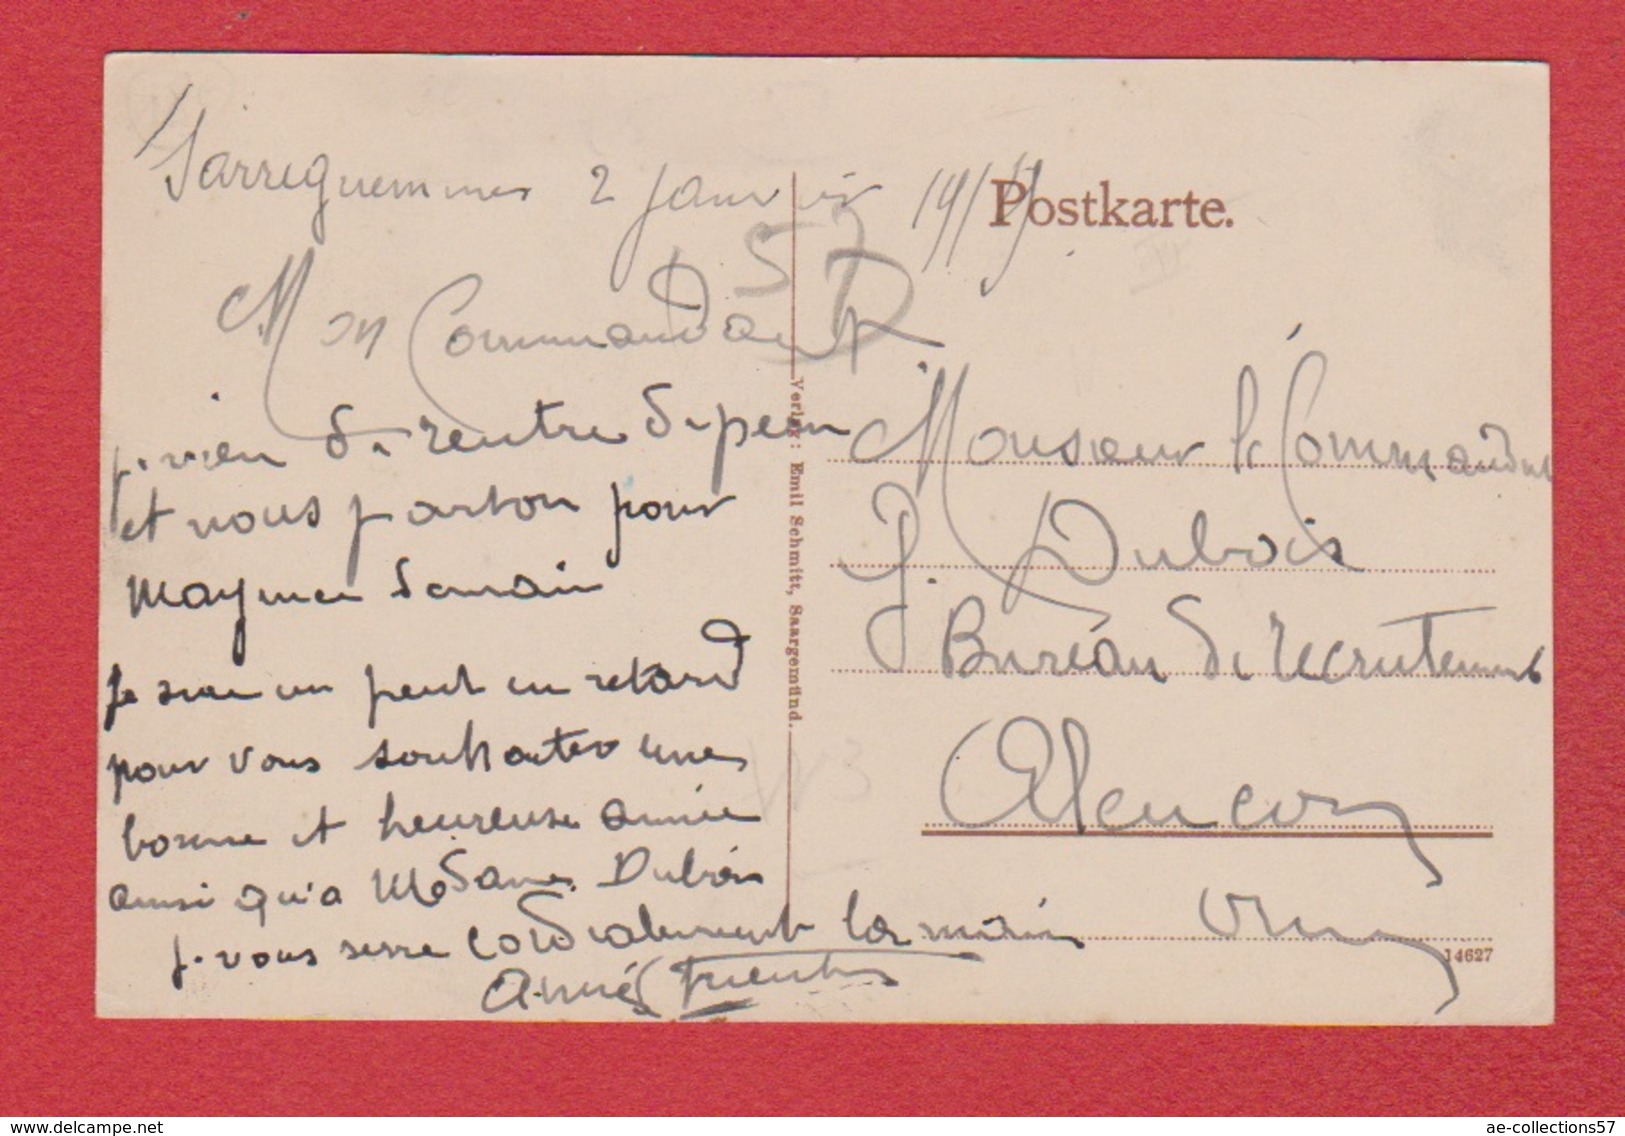 Sarreguemmes 2 janvier 19/19
Mon Commandant
je vien de rentre de perm
et nous parton pour
Mayence demain
Je suis un peut en retard
pour vous souhaiter une
bonne et heureuse année
ainsi qu'a Madame Dubois
je vous serre cordialement la main
Aimé
57
Postkarte.
Monsieur le Commandant
P. Dubois
Bureau de recrutement
Alencon
Orne
Verlag: Emil Schmitt, Saargemünd.
14627
delcampe.net
ae-collections57